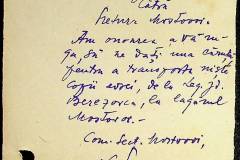 Către
Pretura Mostovoi.
Am onoarea a vă ru-
ga, să ne dați una căruță
pentru a transporta niște
copii evrei, de la Lag. jd.
Berezovca, la lagărul
Mostovoi.-
Com. Sect. Mostovoi,